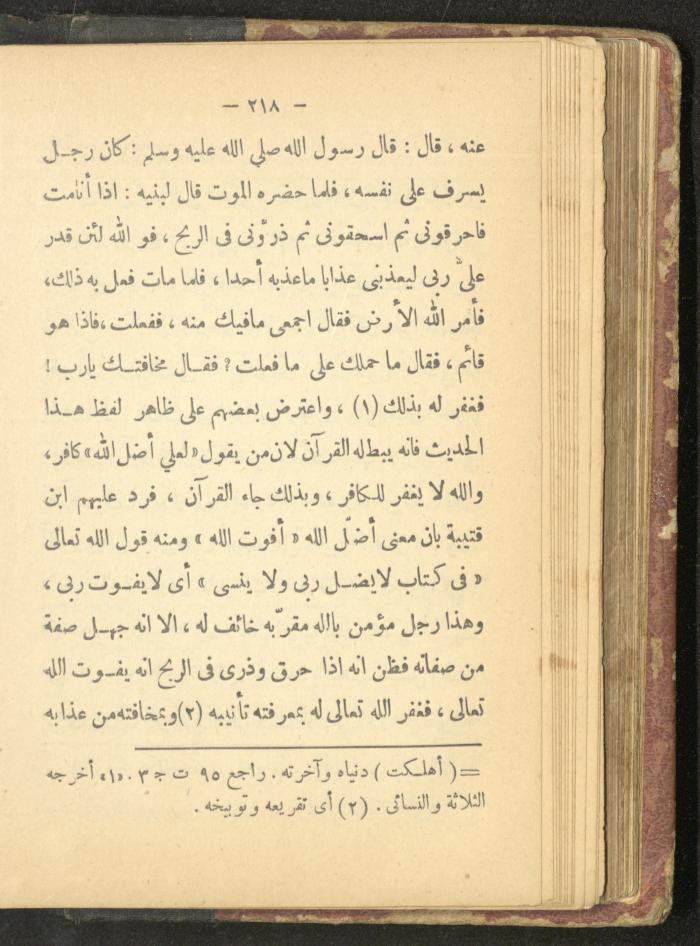 — ٢١٨ —
عنه ، قال : قال رسول الله صلي الله عليه وسلم : كان رجـل
يسرف على نفسه ، فلما حضره الموت قال لبنيه : اذا أنامت
فاحرقونى ثم اسحقونى ثم ذرّونى فى الريح ، فو الله لئن قدر
علىّ ربى ليعذبنى عذابا ماعذبه أحدا ، فلما مات فعل به ذلك،
فأمر الله الأرض فقال اجمعى مافيك منه ، ففعلت ،فاذا هو
قائم ، فقال ما حملك على ما فعلت ? فقـال مخافتـك يارب !
فغفر له بذلك (١) ، واعترض بعضهم على ظاهر لفظ هـذا
الحديث فانه يبطله القرآن لان من يقول «لعلي أضل الله» كافر،
والله لا يغفر للكافر ، وبذلك جاء القرآن ، فرد عليهم ابن
قتيبة بان معنى أضلّ الله « أفوت الله » ومنه قول الله تعالى
« فى كتاب لايضـل ربى ولا ينسى » أى لايفـوت ربى ،
وهذا رجل مؤمن بالله مقرّ به خائف له ، الا انه جهـل صفة
من صفاته فظن انه اذا حرق وذرى فى الريح انه يفـوت الله
تعالى ، فغفر الله تعالى له بمعرفته تأنيبه (٢) وبمخافته من عذابه
= ( أهلـكت ) دنياه وآخرته . راجع ٩٥ ت ج ٣ . «١» أخرجه
الثلاثة والنسائى . (٢) أى تقريعه وتوبيخه .